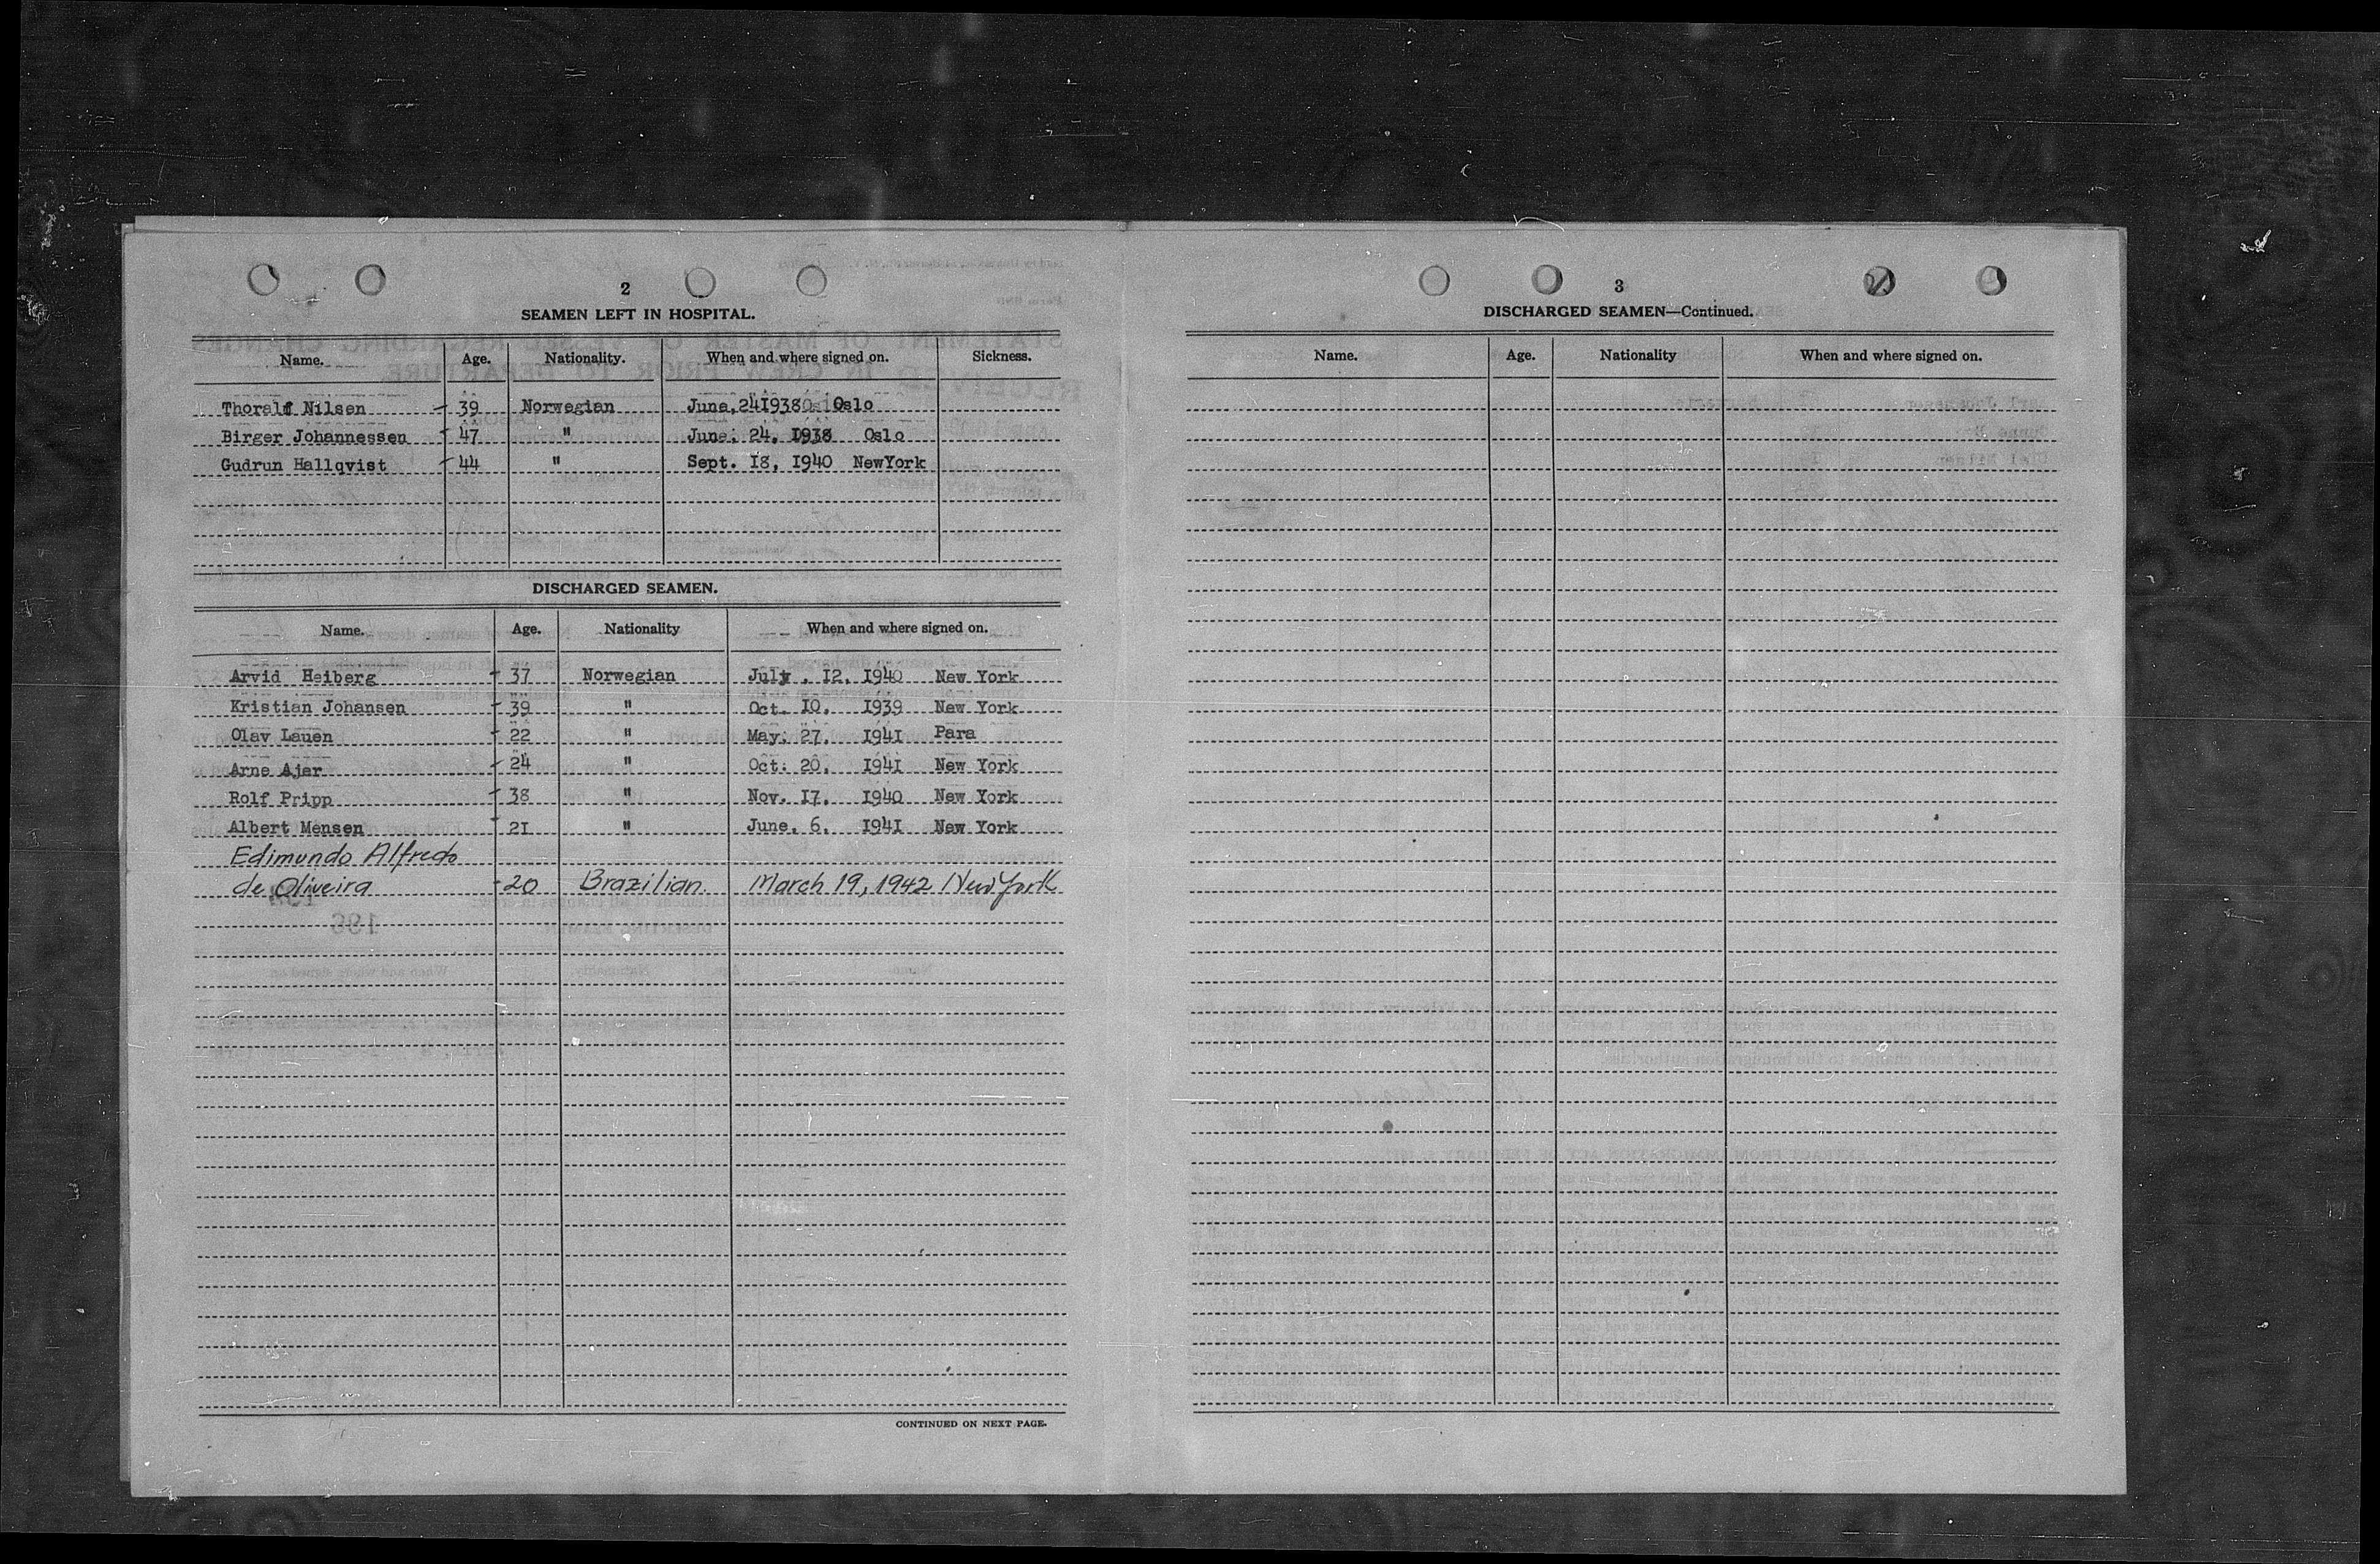 2
SEAMEN LEFT IN HOSPITAL.
Name. Age. Nationality. When and where signed on. Sickness.
Thoralf Nilsen 39 Norwegian June, 24 1938 Oslo
Birger Johannessen 47 " June. 24, 1938 Oslo
Gudrun Hallqvist 44 " Sept. 18, 1940 NewYork
DISCHARGED SEAMEN.
Name. Age. Nationality When and where signed on.
Arvid Heiberg 37 Norwegian July . 12. 1940 New York
Kristian Johansen 39 " Oct. 10. 1939 New York
Olav Lauen 22 " May. 27. 1941 Para
Arne Ajer 24 " Oct. 20. 1941 New York
Rolf Pripp 38 " Nov. 17. 1940 New York
Albert Mensen 21 " June. 6. 1941 New York
Edimundo Alfredo
de Oliveira 20 Brazilian. March 19, 1942 New York
CONTINUED ON NEXT PAGE.
3
DISCHARGED SEAMEN—Continued.
Name. Age. Nationality When and where signed on.